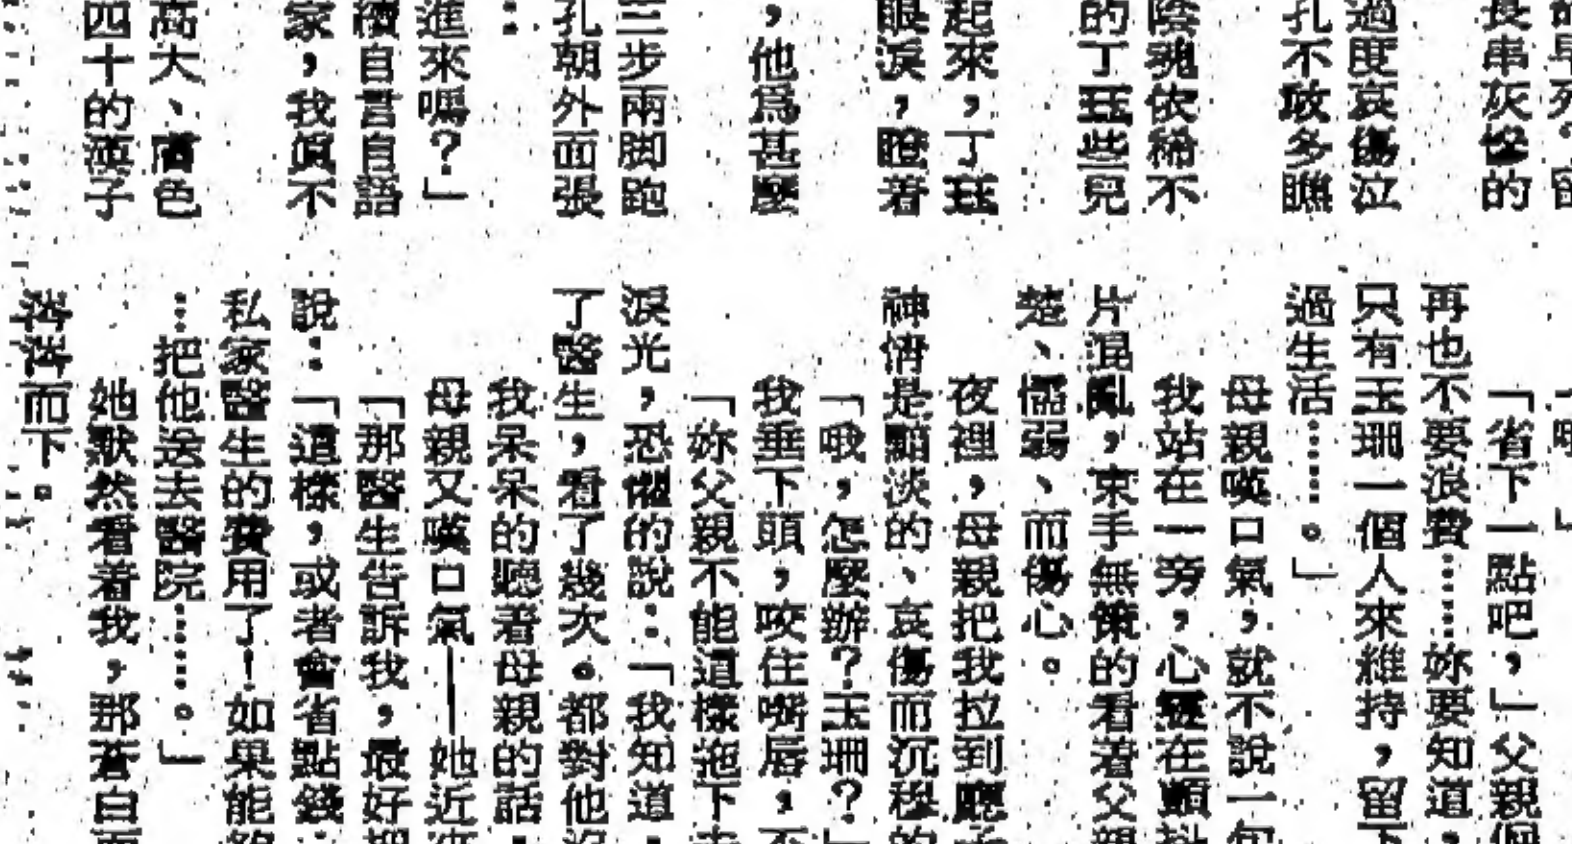 長串灰慘的
過度哀傷泣
孔不敢多瞧
陰魂依稀不
的丁玨些兒
起來，丁玨
眼淚，瞪着
，他爲甚麼
三步兩脚跑
孔朝外面張
進來嗎？」
續自言自語
家，我眞不
高大、膚色
四十的漢子
「省下一點吧，」父親
再也不要浪費……妳要知道，
只有玉珊一個人來維持，留下
過生活……。」
母親嘆口氣，就不說一句
我站在一旁，心靈在顫抖
片混亂，束手無策的看着父親
楚、懦弱、而傷心。
夜裡，母親把我拉到廳
神情是黯淡的、哀傷而沉穆的
「哦，怎麼辦？玉珊？」
我垂下頭，咬住嘴唇，不
「妳父親不能這樣拖下去
淚光，恐懼的說：「我知道，
了醫生，看了幾次。都對他沒
我呆呆的聽着母親的話，
母親又嘆口氣——她近來
「那醫生告訴我，最好把
說：「這樣，或者會省點錢
私家醫生的費用了！如果能夠
…把他送去醫院……。」
她默然看着我，那蒼白而
涔涔而下。